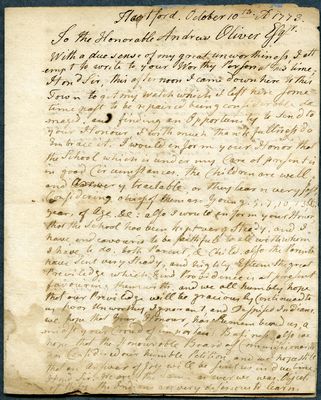 Hartford, October 10th 1773
To the Honorable Andrew Oliver Esqr.
With a due sense of my great unworthiness, I att
empt to write to your Worthy Person this time,
Hond Sir, this afternoon I came down here to this
Town to git my watch which I left here some
time past to be repaired being considerable da
maged, and finding an Opportunity to send to
your Honour, I with much thankfullness do
Embrace it. I would inform your Honor that
the School which is under my Care at present is
in good Circumstances. the Children are well
and very tractable, or they learn very fast
Considering chief of them are Young: 5, 7, 10, 13
years of Age &c: also I would inform your Honor
that the School has been kept very Steady, and I
have endeavoured to be faithfull to all with whom
I have to do, both Parent & Child. also the
have went very Steady, and high
Priviledge which God in Providence is at present
favouring them with, and we all humbly hope
that our Priviledge will be graciously Continued to
us poor unworthy Ignorant and Despised Indians.
hope the Gentlemen have
also we
hope that the Honourable Board of Commissioners
our humble Petition, and we hope
that an Answer of Joy will be sent us in due time
the Indians are very desirous to learn